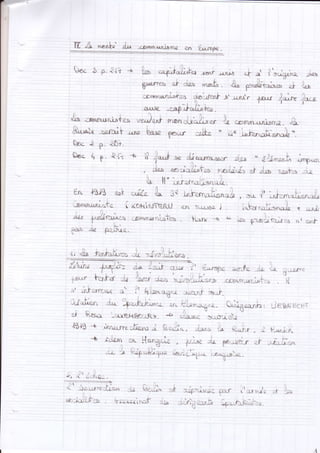 II. La montée du communisme en Europe.
Doc 3 p. 215 → les capitalistes sont unis et à l'origine des
guerres et des morts. Les prolétaires et les
communistes doivent s'unir pour faire face
aux capitalistes.
Les communistes veulent mondialiser le communisme. La
Russie serait une base pour cette " internationale".
Doc 2 p. 215.
Doc 4 p. → Il faut se débarrasser des "éléments impurs
, des socialistes modérés et des restes de
la II° internationale.
En 1919 est créée la 3° internationale, ou l'internationale
communiste (KOMINTERN en russe) : internationale
des communistes. Marx → " les prolétaires n'ont
pas de patrie.
1) Les tentatives de révolutions
Lénine profite du fait que l'Europe sorte de la guerre
pour tenter de faire des révolutions communistes. Il
s'intéresse à l'Allemagne avant tout.
Création du Spartakisme en Allemagne. Dirigeants: LIEBKNECHT
et Rosa LUXEMBURG → classe ouvrière
1919 → insurrections à Berlin, dans la Ruhr, à Munich
→ idem en Hongrie, prise de pouvoir et création
de la République Soviétique hongroise.
2) L'échec.
L'insurrection de Berlin est réprimée par l'armée et les
socialistes. Assassinat des dirigeants Spartakistes.